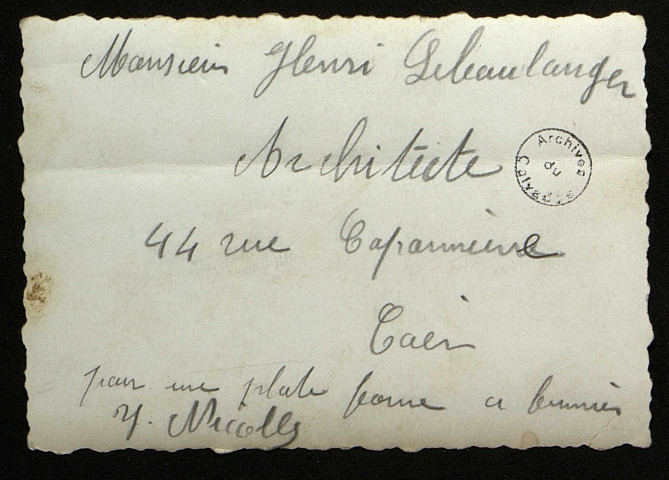 Monsieur Henri Leboulanger
Architecte
Archives du Calvados
44 rue Caponnière
Caen
pour une plate forme a
Y. Nicolle